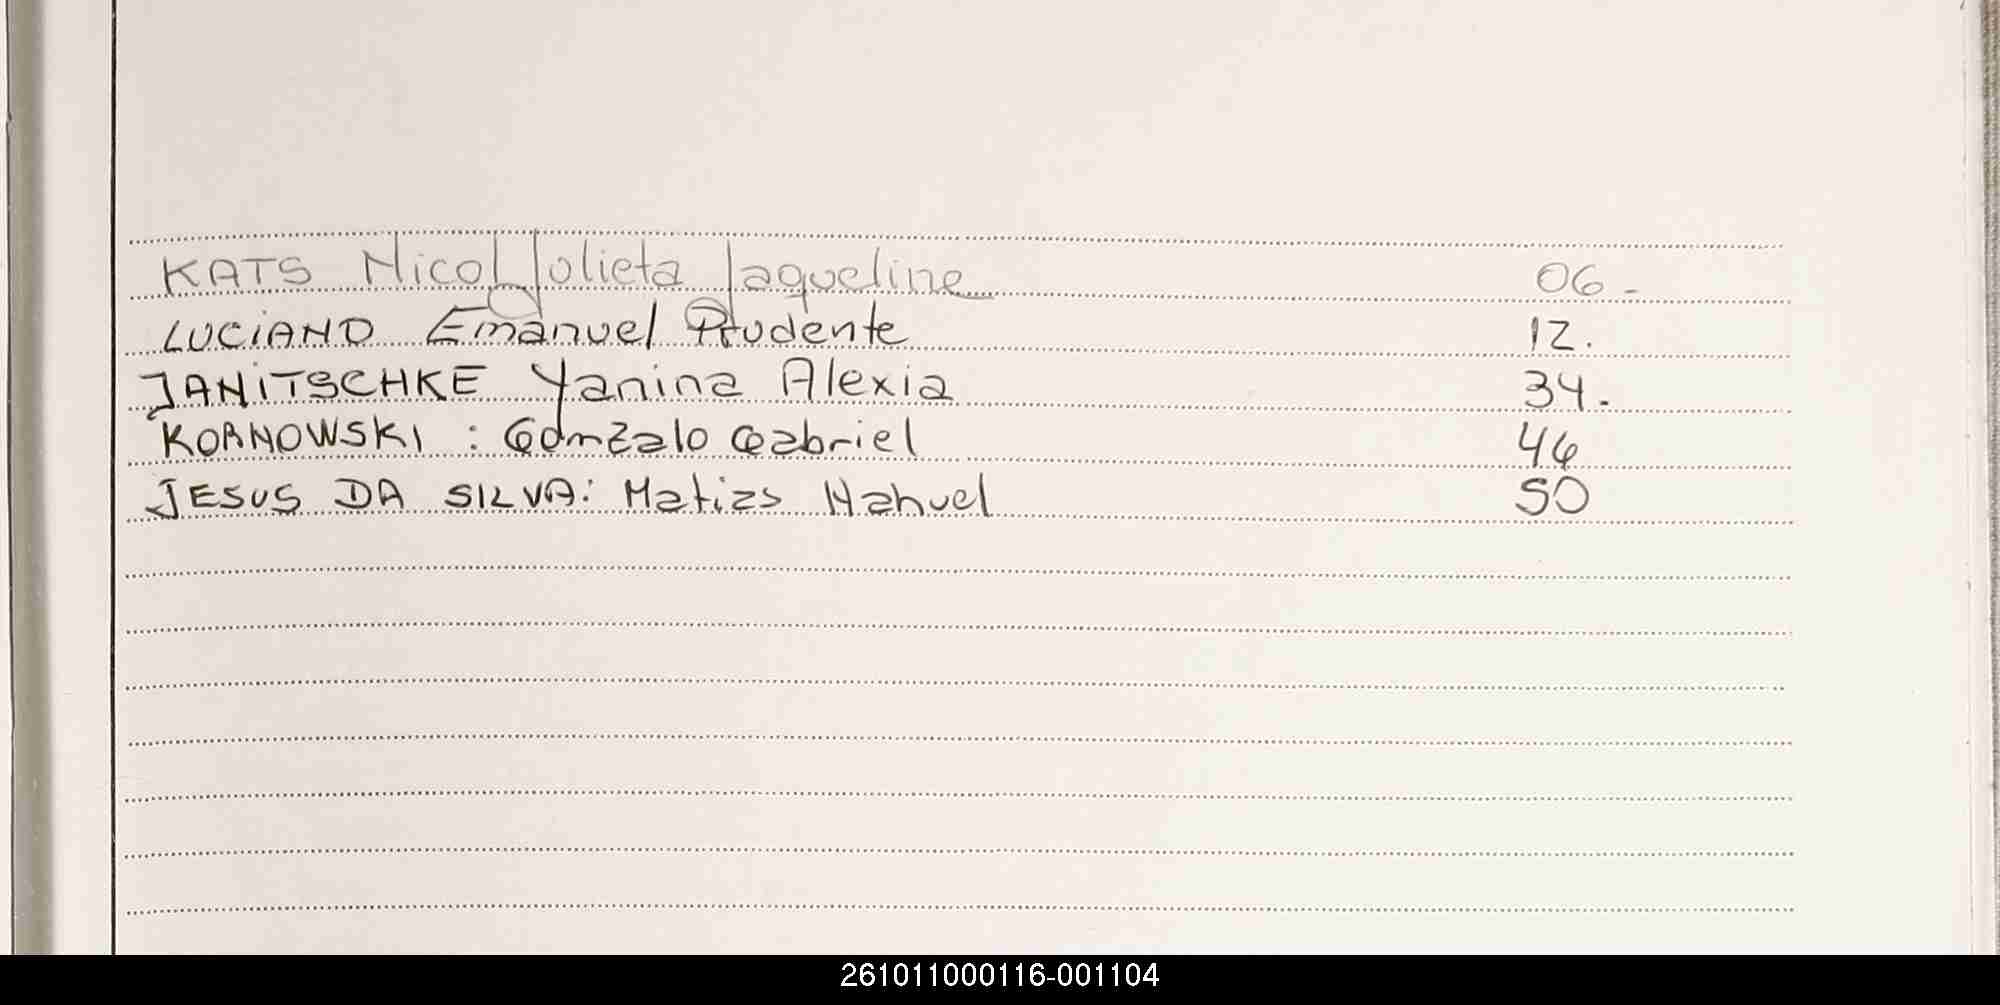 KATS Nicol Julieta Jaqueline 06-
LUCIANO Emanuel Prudente 12.
JANITSCHKE Yanina Alexia 34.
KORNOWSKI : Gonzalo Gabriel 46
JESUS DA SILVA: Matias Nahuel 50
261011000116-001104